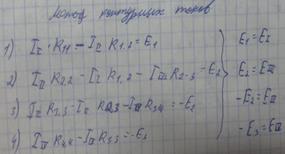 Метод контурных токов
1) I_I · R_11 − I_II R_1,2 = E_1
2) I_II R_2,2 − I_I R_1,2 − I_III R_2-3 = E_2
3) I_II R_3,3 − I_II R_2,3 − I_III R_3,4 = −E_2
4) I_IV R_4,4 − I_III R_3,3 = −E_3
E_1 = E_I
E_2 = E_II
−E_2 = E_III
−E_3 = E_III